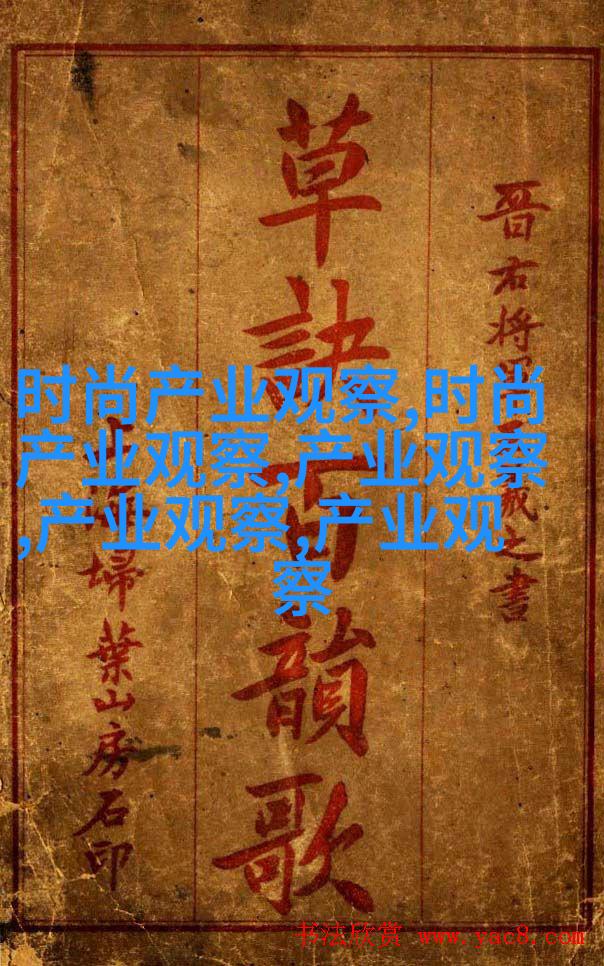 晉右將軍王羲之書
草訣百韻歌
上海掃葉山房石印
时尚产业观察,时尚
产业观察,产业观察
,产业观察,产业观
察
书法欣赏 www.yac8.com